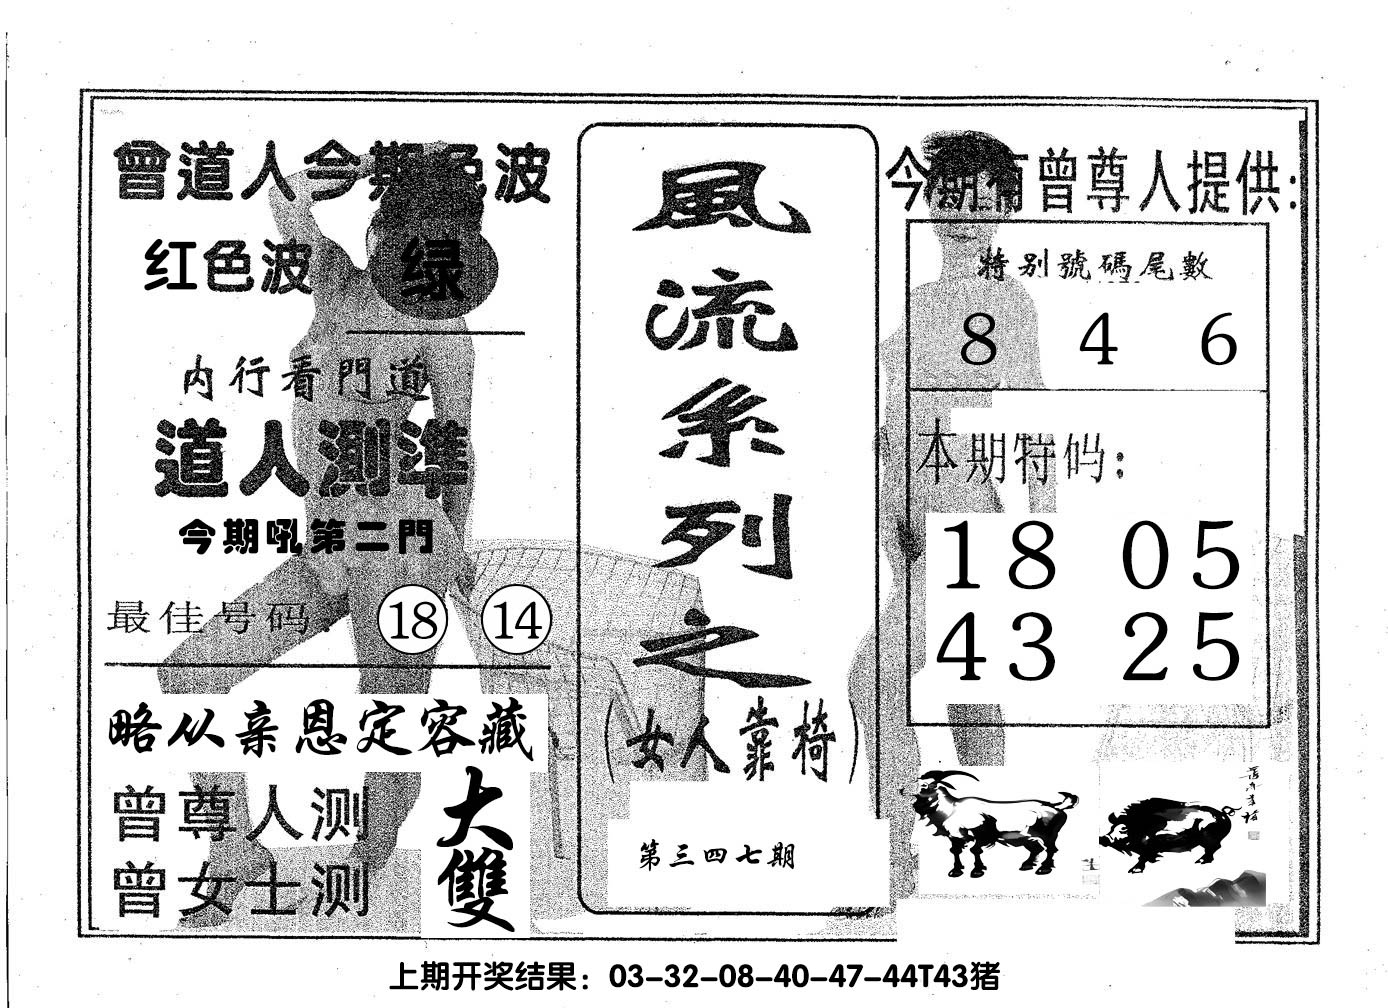 曾道人今期色波
红色波 绿
内行看門道
道人測準
今期吼第二門
最佳号码: 18 14
略从亲恩定容藏
曾尊人测 大
曾女士测 雙
風流系列之
(女人靠椅)
第三四七期
今期有曾尊人提供:
特别號碼尾數
8 4 6
本期特码:
18 05
43 25
上期开奖结果：03-32-08-40-47-44T43猪